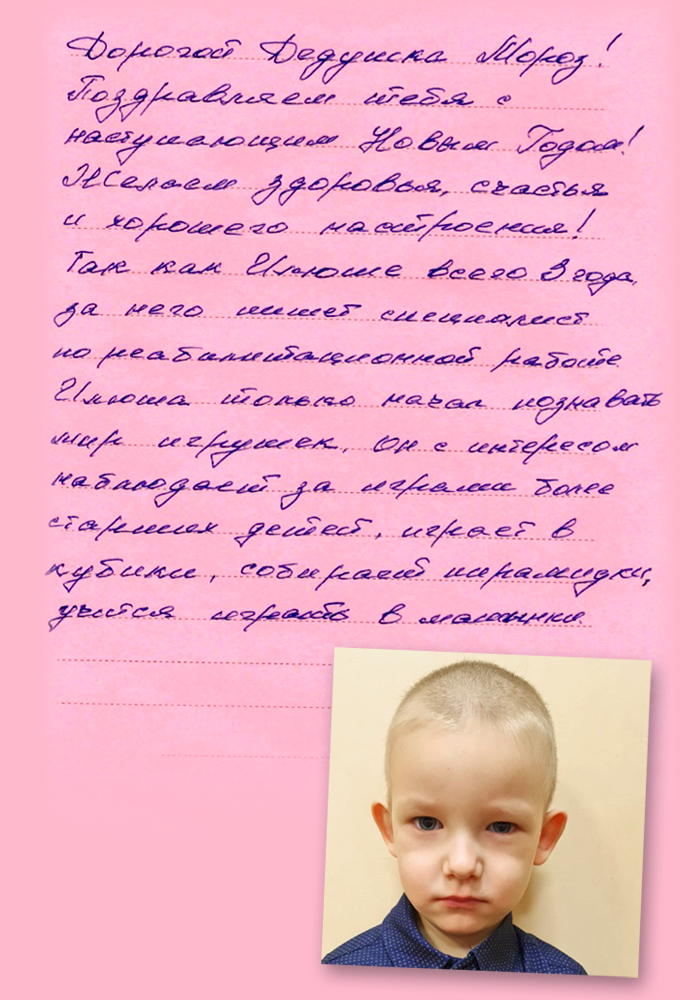 Дорогой Дедушка Мороз!
Поздравляем тебя с
наступающим Новым Годом!
Желаем здоровья, счастья
и хорошего настроения!
Так как Илюше всего 3 года,
за него пишет специалист
по реабилитационной работе.
Илюша только начал познавать
мир игрушек. Он с интересом
наблюдает за играми более
старших детей, играет в
кубики, собирает пирамидки,
учится играть в машинки.